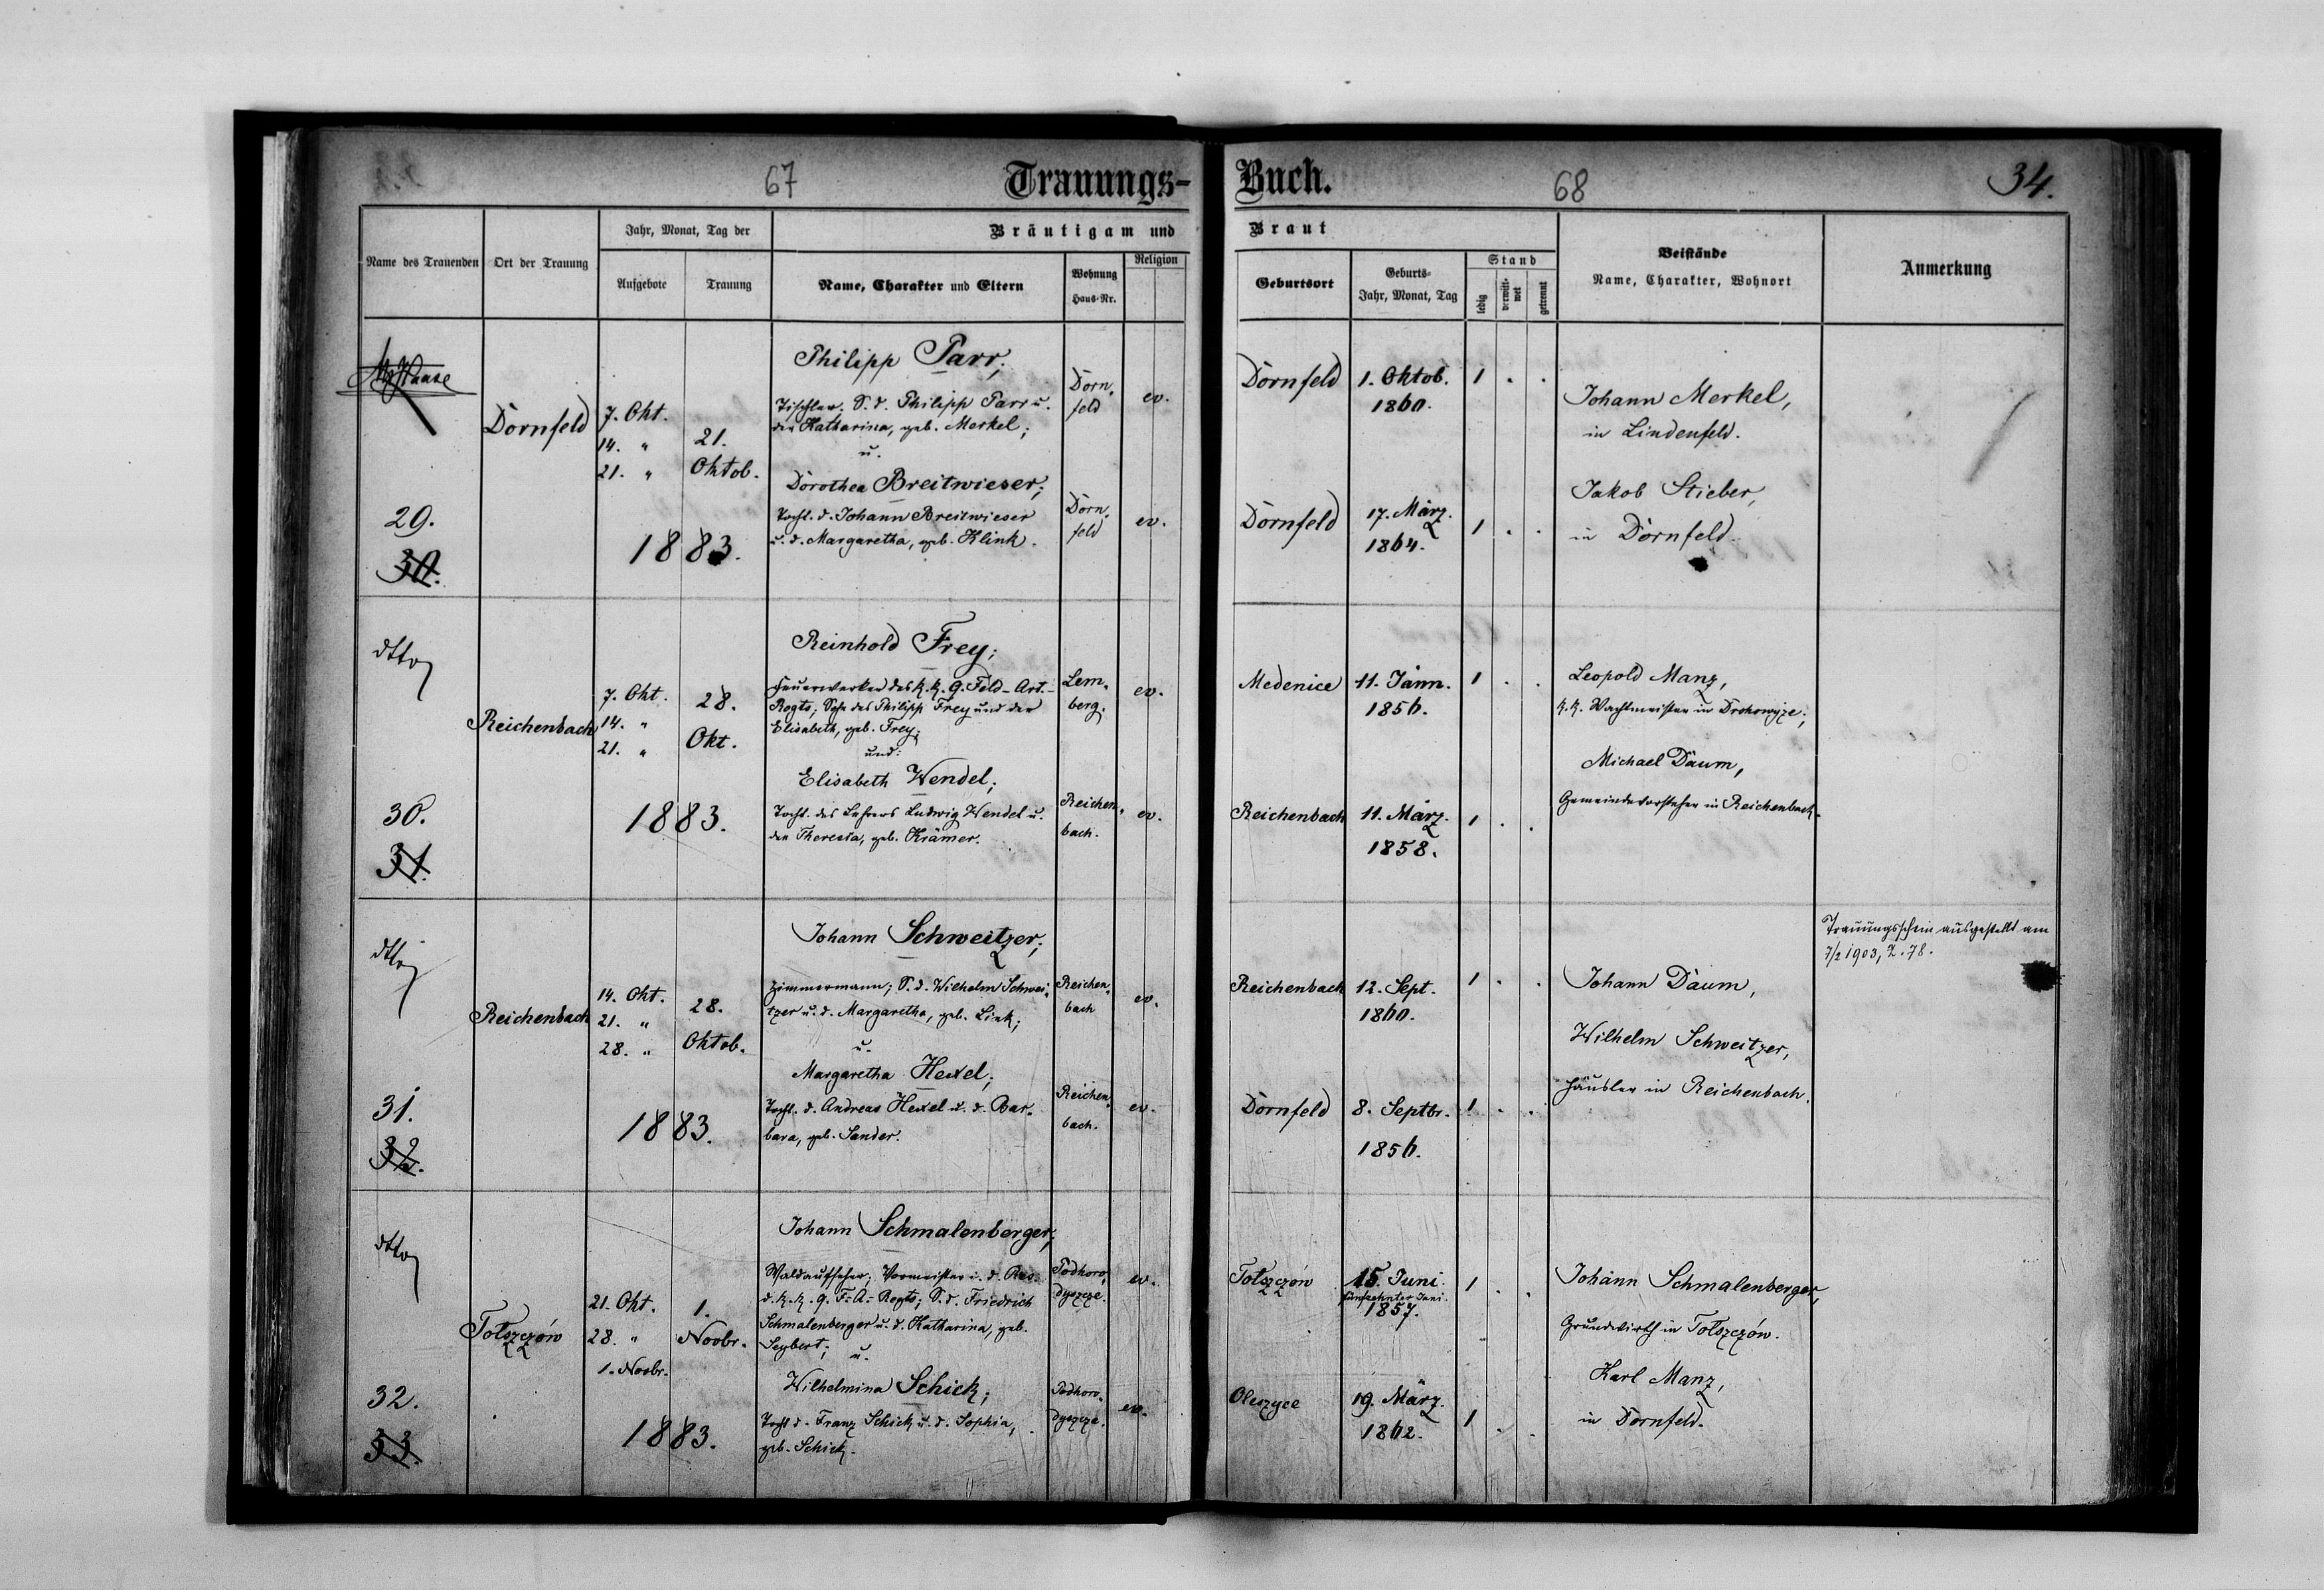 67
Trauungs-
Buch.
68
34.
Name des Trauenden
Ort der Trauung
Jahr, Monat, Tag der
Aufgebote
Trauung
Bräutigam und
Name, Charakter und Eltern
Wohnung
Haus-Nr.
Religion
Braut
Geburtsort
Geburts-
Jahr, Monat, Tag
Stand
ledig
verwitt-
wet
getrennt
Beistände
Name, Charakter, Wohnort
Anmerkung
29.
30.
Dornfeld
7. Okt.
14. "
21. "
21.
Oktob.
1883.
Philipp Parr;
Tischler. S. d. Philipp Parr u.
der Katharina, geb. Merkel;
u.
Dorothea Breitwieser;
Tocht. d. Johann Breitwieser
u. d. Margaretha, geb. Klink.
Dorn-
feld
ev.
Dorn-
feld
ev.
Dornfeld
1. Oktob.
1860.
1 . .
Dornfeld
17. März
1864.
1 . .
Johann Merkel,
in Lindenfeld.
Jakob Stieber,
in Dornfeld.
dtto
30.
31.
Reichenbach
7. Okt.
14. "
21. "
28.
Okt.
1883.
Reinhold Frey;
Feuerwerker des k. k. 9. Feld-Art.-
Regts; Sohn des Philipp Frey und der
Elisabeth, geb. Frey;
und:
Elisabeth Wendel;
Tocht. des Lehrers Ludwig Wendel u.
der Theresia, geb. Krämer.
Lem-
berg.
ev.
Reichen-
bach.
ev.
Medenice
11. Jänn.
1856.
1 . .
Reichenbach
11. März.
1858.
1 . .
Leopold Manz,
k. k. Wachtmeister in
Michael Daum,
Gemeindevorsteher in Reichenbach.
dtto
31.
32.
Reichenbach
14. Okt.
21. "
28. "
28.
Oktob.
1883.
Johann Schweitzer;
Zimmermann; S. d. Wilhelm Schwei-
tzer u. d. Margaretha, geb. Link;
u.
Margaretha Hexel;
Tocht. d. Andreas Hexel u. d. Bar-
bara, geb. Sander.
Reichen-
bach
ev.
Reichen-
bach.
ev.
Reichenbach
12. Sept.
1860.
1 . .
Dornfeld
8. Septbr.
1856.
1 . .
Johann Daum,
Wilhelm Schweitzer,
Häusler in Reichenbach.
Trauungsschein ausgestellt am
7/2 1903, Z. 78.
dtto
32.
33.
Tołszczów
21. Okt.
28. "
1. Novbr.
1.
Novbr.
1883.
Johann Schmalenberger;
Waldaufseher; Vormeister i. d. Res.
d. k. k. 9. F.-A.-Regts; S. d. Friedrich
Schmalenberger u. d. Katharina, geb.
Seybert; u.
Wilhelmina Schick;
Tocht. d. Franz Schick u. d. Sophia,
geb. Schick.
Podhoro-
dyszcze.
ev.
Podhoro-
dyszcze.
ev.
Tołszczów
15. Juni.
fünfzehnter Juni.
1857.
1 . .
Oleszyce
19. März.
1862.
1 . .
Johann Schmalenberger,
Grundwirth in Tołszczów.
Karl Manz,
in Dornfeld.